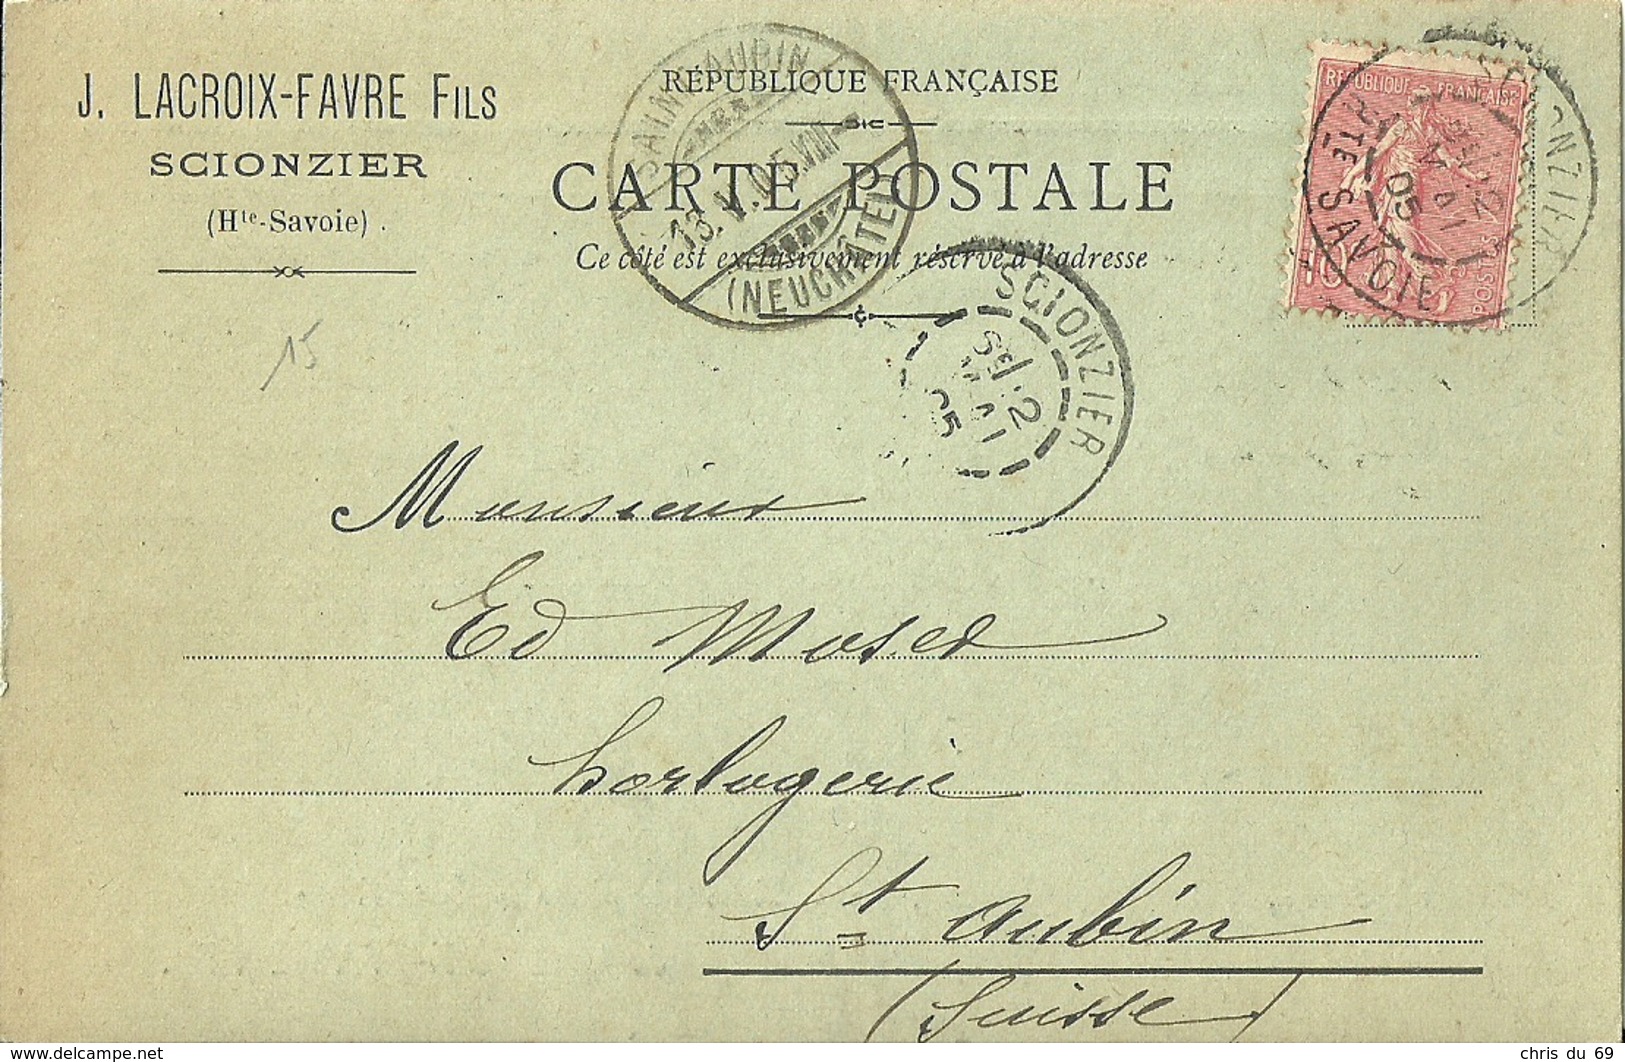 J. LACROIX-FAVRE FILS
SCIONZIER
(Hte-Savoie).
RÉPUBLIQUE FRANÇAISE
CARTE POSTALE
Ce côté est exclusivement réservé à l'adresse
SAINT-AUBIN
13.V.05.VIII
(NEUCHÂTEL)
SCIONZIER
12 MAI 05
HTE SAVOIE
REPUBLIQUE FRANÇAISE
10
POSTES
SCIONZIER
2
MAI
05
15
Monsieur
Ed Moser
horlogerie
St Aubin
(Suisse)
delcampe.net
chris du 69